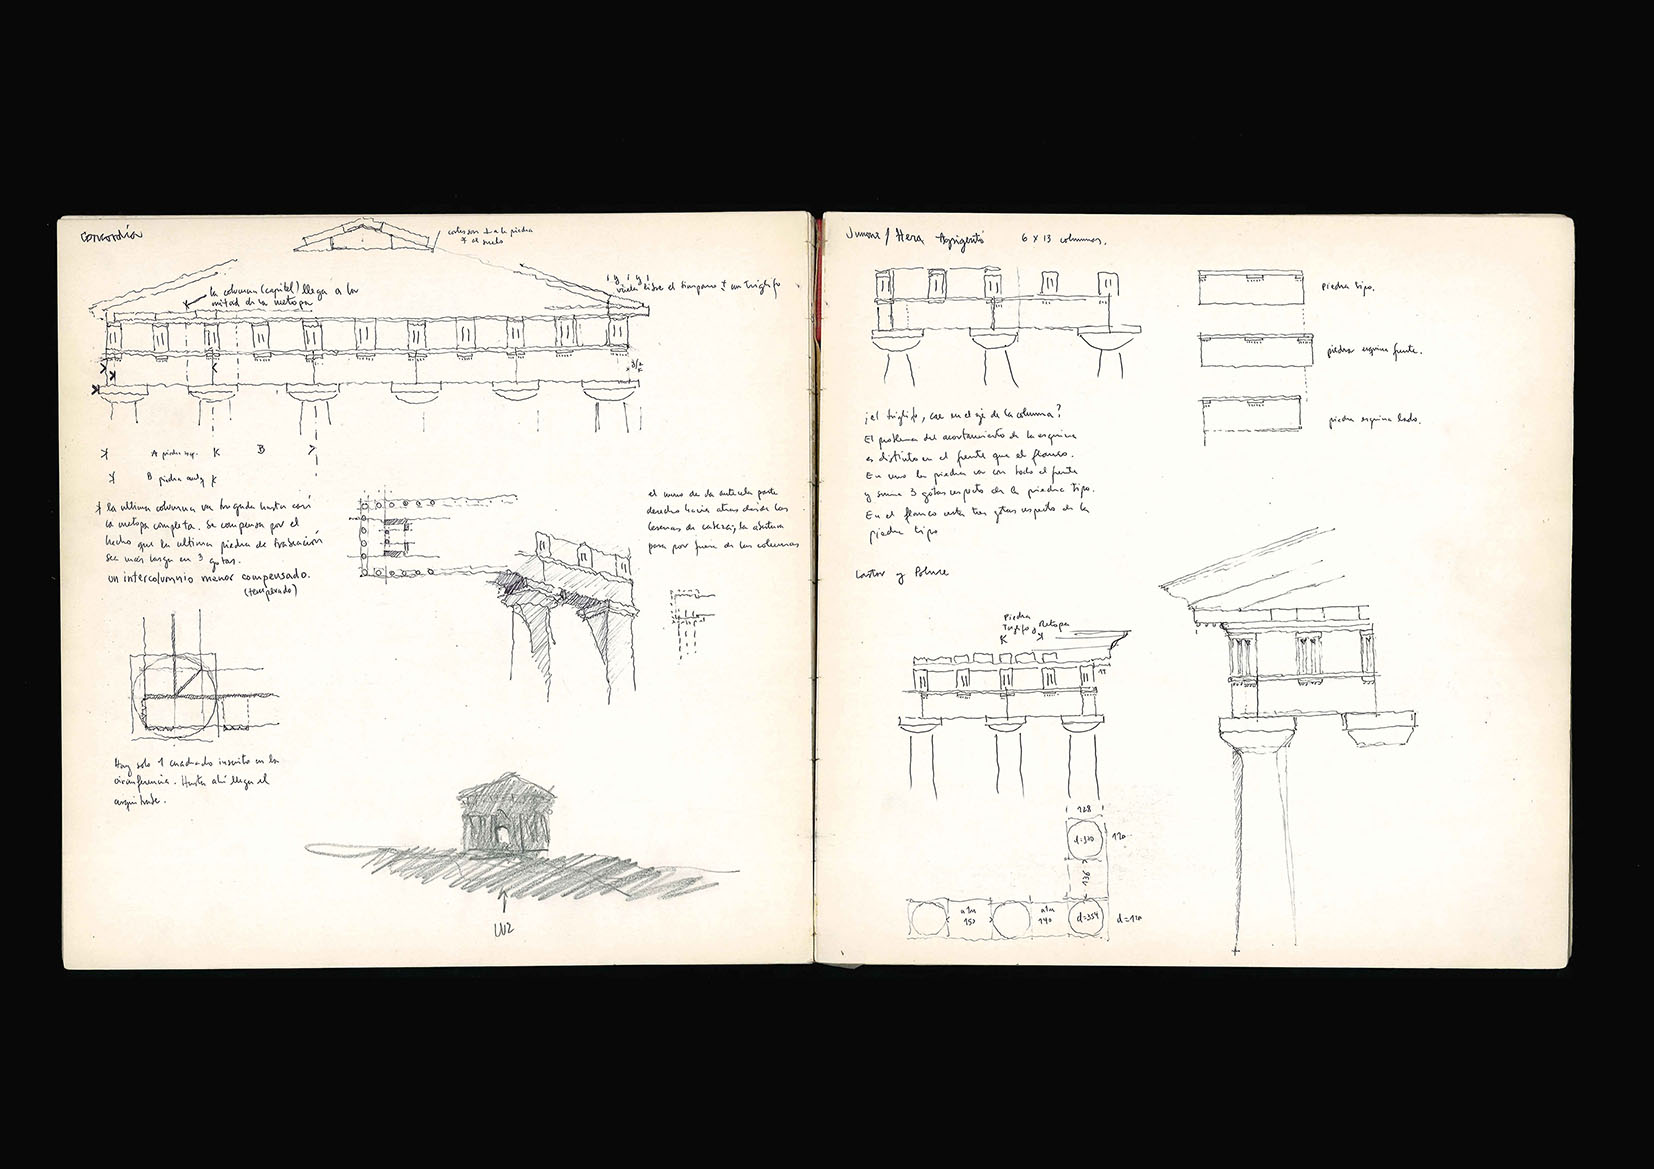 Concordia
cortes son ⊥ a la piedra
y al suelo
la columna (capitel) llega a la
mitad de la metopa
vuela libre el timpano ± un triglifo
A piedra sup. K B
B piedra K
* la ultima columna va hasta casi
la metopa completa. Se compensa por el
hecho que la ultima piedra de
sea más larga en 3 gotas.
un intercolumnio menor compensado.
(temperado)
el muro de la antecela parte
derecho hacia atras desde las
de cabeza, la abertura
pasa por fuera de las columnas
Hay solo 1 cuadrado inscrito en la
circunferencia. Hasta ahí llega el
arquitrabe.
LUZ
Junone / Hera Agrigento 6 x 13 columnas.
piedra tipo.
piedra esquina frente.
piedra esquina lado.
¿el triglifo, cae en el eje de la columna?
El problema del acortamiento de la esquina
es distinto en el frente que el flanco.
En uno la piedra va con todo el frente
y suma 3 gotas respecto de la piedra tipo.
En el flanco resta tres gotas respecto de la
piedra tipo
Castor y Poluce
Piedra
Triglifo y Metopa
K
128
d=310
120
136
150
140
d=354
d=120